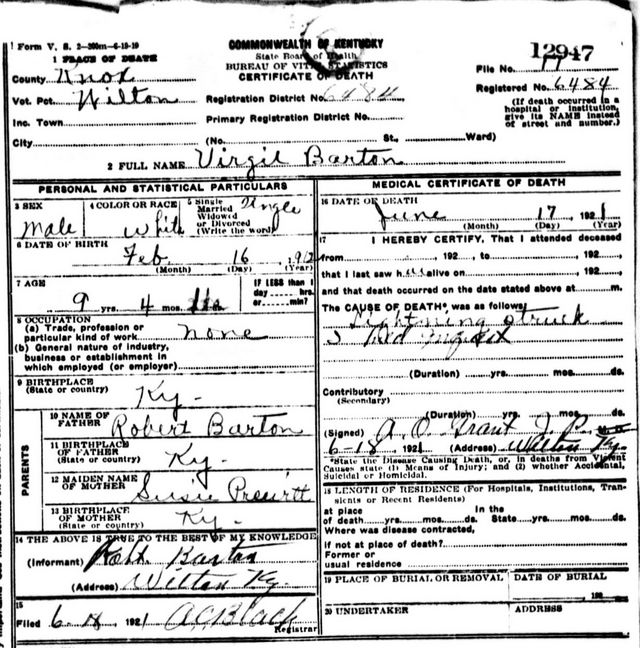 Form V. S. 2-200m-6-19-19
COMMONWEALTH OF KENTUCKY
12947
1 PLACE OF DEATH
State Board of Health
BUREAU OF VITAL STATISTICS
File No. 17
County Knox
CERTIFICATE OF DEATH
Registered No. 6484
Vot. Pct. Wilton
Registration District No. 6484
(If death occurred in a
hospital or institution,
give its NAME instead
of street and number.)
Inc. Town
Primary Registration District No.
City
(No. St., Ward)
2 FULL NAME Virgil Barton
PERSONAL AND STATISTICAL PARTICULARS
3 SEX
Male
4 COLOR OR RACE
White
5 Single
Married
Widowed
or Divorced
(Write the word)
Single
6 DATE OF BIRTH
Feb. 16, 1912
(Month) (Day) (Year)
7 AGE
9 yrs. 4 mos.
IF LESS than 1
day hrs.
or min?
8 OCCUPATION
(a) Trade, profession or
particular kind of work none
(b) General nature of industry,
business or establishment in
which employed (or employer)
9 BIRTHPLACE
(State or country)
Ky.
PARENTS
10 NAME OF
FATHER
Robert Barton
11 BIRTHPLACE
OF FATHER
(State or country)
Ky.
12 MAIDEN NAME
OF MOTHER
Susie Prewitt
13 BIRTHPLACE
OF MOTHER
(State or country)
Ky.
14 THE ABOVE IS TRUE TO THE BEST OF MY KNOWLEDGE
(Informant) Robt Barton
(Address) Wilton Ky
15
Filed 6-18 1921
Registrar
MEDICAL CERTIFICATE OF DEATH
16 DATE OF DEATH
June 17, 1921
(Month) (Day) (Year)
17 I HEREBY CERTIFY, That I attended deceased
from , 192 to , 192
that I last saw h alive on , 192
and that death occurred on the date stated above at m.
The CAUSE OF DEATH* was as follows:
Lightning struck
(Duration) yrs. mos. ds.
Contributory
(Secondary)
(Duration) yrs. mos. ds.
(Signed) A. O. Grant J. P.
6-18 1921 (Address) Wilton Ky.
*State the Disease Causing Death, or, in deaths from Violent
Causes state (1) Means of Injury; and (2) whether Accidental,
Suicidal or Homicidal.
18 LENGTH OF RESIDENCE (For Hospitals, Institutions, Tran-
sients or Recent Residents)
at place In the
of death yrs. mos. ds. State yrs. mos. ds.
Where was disease contracted,
if not at place of death?
Former or
usual residence
19 PLACE OF BURIAL OR REMOVAL
DATE OF BURIAL
192
20 UNDERTAKER
ADDRESS